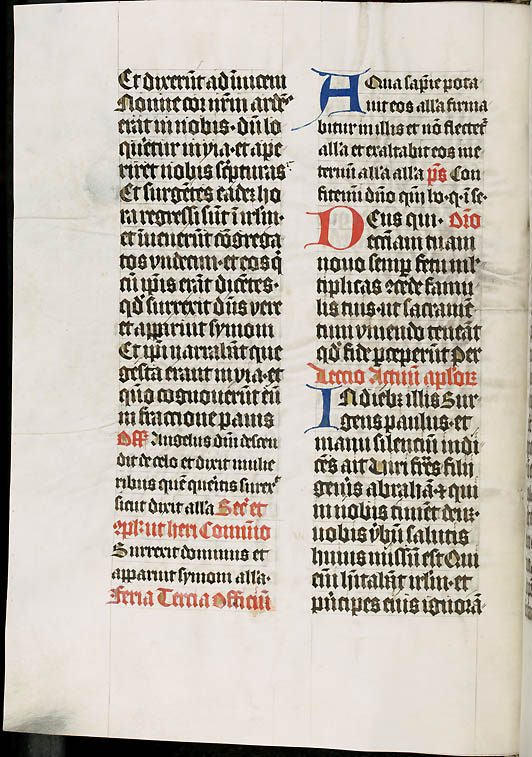 Et dixerūt ad īuicem
Nonne cor nr̄m ardēs
erāt in nobis · dū lo
quēretur in via · et ape
riret nobis scripturas
Et surgētes eadē ho
ra regressi sūt ī irl̄m ·
et inuenerūt cōgrega
tos vndecim · et eos q̄
cū ip̄is erāt dicētes ·
qd̓ surrexit dn̄s vere
et apparuit symoni
Et ip̄i narrabāt que
gesta erant in via · et
quō cognouerūt eū
in fraccione panis
Off̄ Angelus dn̄i descen
dit de celo et dixit mulie
ribus quē queritis surrex̄
sicut dixit alla Sec̄r et
9pl̄ · ut heri Com̄unio
Surrexit dominus et
apparuit symoni alla ·
Feria Tercia Officiū
AQua sapīe pota
uit eos alla firma
bitur in illis et nō flectet̄
alla et exaltabit eos in e
ternū alla alla p̄s Con
fitemī dn̄o qm̄ bo · q̄ i se ·
DEus qui · Or̄o
eccl̄iam tuam
nouo semp fetu ml̄
tiplicas 9cede famu
lis tuis · ut sacramēt
tum viuendo teneāt
qd̓ fide pceperūt Per
Lectio Actuū apl̓oꝝ
IN dieb; illis Sur
gens paulus · et
manu silenciū indi
cēs ait Viri fr̄es filii
gen̄is abrahā · ⁊ qui
in uobis timēt deū ·
uobis v̄bū salutis
huius missū est Qui
em̄ h̄itabāt irl̄m · et
pn̄cipes eius ignorā